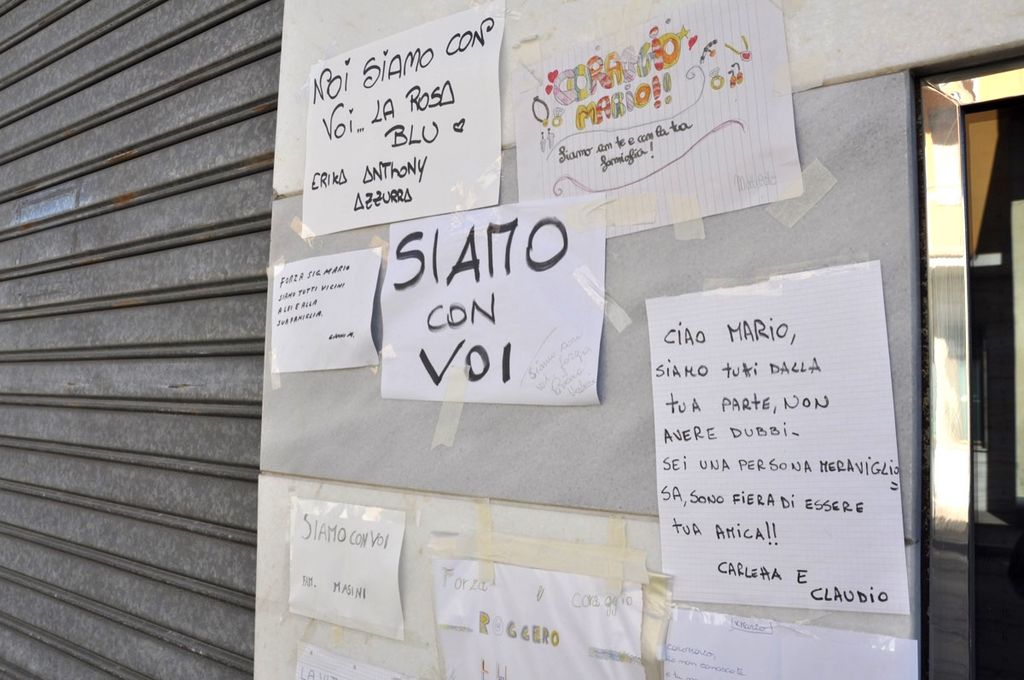 NOI SIAMO CON
VOI... LA ROSA
BLU
ERIKA ANTHONY
AZZURRA
CORAGGIO
MARIO!!
Siamo con te e con la tua
famiglia!
FORZA SIG. MARIO
SIAMO TUTTI VICINI
A LEI E ALLA
SUA FAMIGLIA.
SIAMO
CON
VOI
CIAO MARIO,
SIAMO TUTTI DALLA
TUA PARTE, NON
AVERE DUBBI-
SEI UNA PERSONA MERAVIGLIO
SA, SONO FIERA DI ESSERE
TUA AMICA!!
CARLENA E
CLAUDIO
SIAMO CON VOI
FAM. MASINI
Forza
Coraggio
ROGGERO
X MARIO